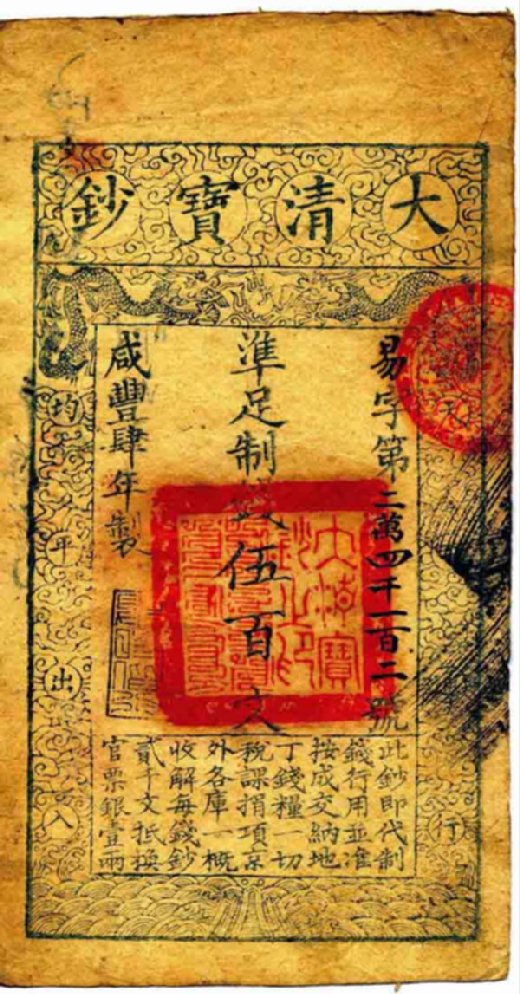 大清寶鈔
易字第二萬四千一百二號
準足制錢伍百文
咸豐肆年製
此鈔即代制
錢行用並准
按成交納地
丁錢糧一切
稅課捐項京
外各庫一概
收解每錢鈔
貳千文抵換
官票銀壹兩
行
均平出入
大清寶鈔之印